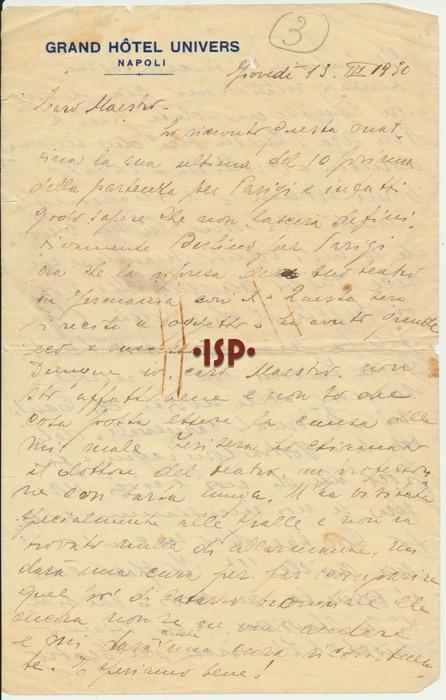 3
GRAND HÔTEL UNIVERS
NAPOLI
Giovedì 13. III 1930
Caro Maestro.
Ho ricevuto questa mat-
tina la sua ultima del 10 prima
della partenza per Parigi e infatti
godo sapere che non lascerà defini-
tivamente Berlino per Parigi
ora che la ripresa del suo teatro
in Germania con "Questa sera
si recita a soggetto" ha avuto grande
eco e successo
•ISP•
Dunque io, caro Maestro, non
sto affatto bene e non so che
cosa possa essere la causa del
mio male. Ieri sera ho chiamato
il dottore del teatro, un professo
ne con tanta M'ha visitata
specialmente alle spalle e non ha
trovato nulla di allarmante. Mi
darà una cura per far scomparire
quel po' di catarro bronchiale che
ancora non se ne vuol andare
e mi darà anche una cura ricostituen
te. Speriamo bene!